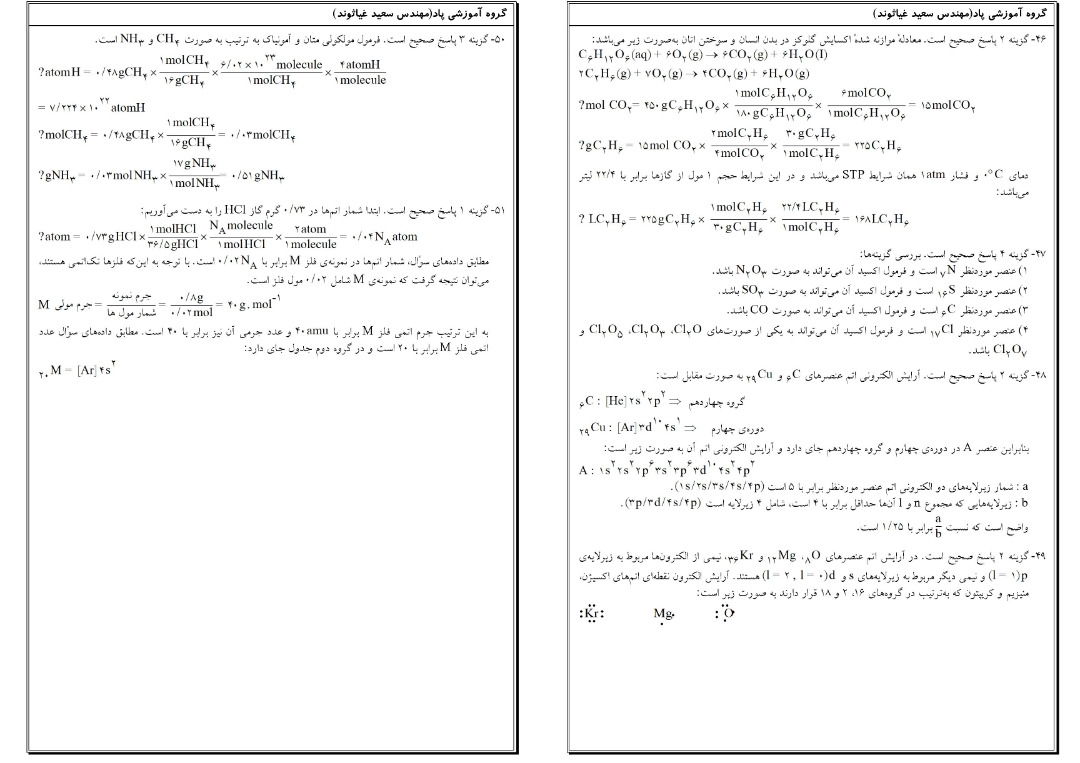 گروه آموزشی پاد(مهندس سعید غیاثوند)
۴۶- گزینه ۲ پاسخ صحیح است. معادلهٔ موازنه شدهٔ اکسایش گلوکز در بدن انسان و سوختن اتان به‌صورت زیر می‌باشد:
C۶H۱۲O۶(aq) + ۶O۲(g) → ۶CO۲(g) + ۶H۲O(l)
۲C۲H۶(g) + ۷O۲(g) → ۴CO۲(g) + ۶H۲O(g)
?mol CO۲ = ۴۵۰ gC۶H۱۲O۶ × ۱molC۶H۱۲O۶ / ۱۸۰ gC۶H۱۲O۶ × ۶molCO۲ / ۱molC۶H۱۲O۶ = ۱۵molCO۲
?gC۲H۶ = ۱۵mol CO۲ × ۲molC۲H۶ / ۴molCO۲ × ۳۰gC۲H۶ / ۱molC۲H۶ = ۲۲۵C۲H۶
دمای ۰°C و فشار ۱atm همان شرایط STP می‌باشد و در این شرایط حجم ۱ مول از گازها برابر با ۲۲/۴ لیتر
می‌باشد:
? LC۲H۶ = ۲۲۵gC۲H۶ × ۱molC۲H۶ / ۳۰gC۲H۶ × ۲۲/۴LC۲H۶ / ۱molC۲H۶ = ۱۶۸LC۲H۶
۴۷- گزینه ۴ پاسخ صحیح است. بررسی گزینه‌ها:
۱) عنصر موردنظر ۷N است و فرمول اکسید آن می‌تواند به صورت N۲O۳ باشد.
۲) عنصر موردنظر ۱۶S است و فرمول اکسید آن می‌تواند به صورت SO۳ باشد.
۳) عنصر موردنظر ۶C است و فرمول اکسید آن می‌تواند به صورت CO باشد.
۴) عنصر موردنظر ۱۷Cl است و فرمول اکسید آن می‌تواند به یکی از صورت‌های Cl۲O، Cl۲O۳، Cl۲O۵ و
Cl۲O۷ باشد.
۴۸- گزینه ۲ پاسخ صحیح است. آرایش الکترونی اتم عنصرهای ۶C و ۲۹Cu به صورت مقابل است:
۶C : [He]۲s۲۲p۲ ⇒ گروه چهاردهم
۲۹Cu : [Ar]۳d۱۰۴s۱ ⇒ دوره‌ی چهارم
بنابراین عنصر A در دوره‌ی چهارم و گروه چهاردهم جای دارد و آرایش الکترونی اتم آن به صورت زیر است:
A : ۱s۲۲s۲۲p۶۳s۲۳p۶۳d۱۰۴s۲۴p۲
a : شمار زیرلایه‌های دو الکترونی اتم عنصر موردنظر برابر با ۵ است (۱s/۲s/۳s/۴s/۴p).
b : زیرلایه‌هایی که مجموع n و l آن‌ها حداقل برابر با ۴ است، شامل ۴ زیرلایه است (۳p/۳d/۴s/۴p).
واضح است که نسبت a/b برابر با ۱/۲۵ است.
۴۹- گزینه ۲ پاسخ صحیح است. در آرایش اتم عنصرهای ۸O، ۱۲Mg و ۳۶Kr، نیمی از الکترون‌ها مربوط به زیرلایه‌ی
p(l = ۱) و نیمی دیگر مربوط به زیرلایه‌های s و d(l = ۲ , l = ۰) هستند. آرایش الکترون نقطه‌ای اتم‌های اکسیژن،
منیزیم و کریپتون که به‌ترتیب در گروه‌های ۱۶، ۲ و ۱۸ قرار دارند به صورت زیر است:
:Kr: Mg. :O
گروه آموزشی پاد(مهندس سعید غیاثوند)
۵۰- گزینه ۳ پاسخ صحیح است. فرمول مولکولی متان و آمونیاک به ترتیب به صورت CH۴ و NH۳ است.
?atomH = ۰/۴۸gCH۴ × ۱molCH۴ / ۱۶gCH۴ × ۶/۰۲×۱۰۲۳ molecule / ۱molCH۴ × ۴atomH / ۱molecule
= ۷/۲۲۴×۱۰۲۲ atomH
?molCH۴ = ۰/۴۸gCH۴ × ۱molCH۴ / ۱۶gCH۴ = ۰/۰۳molCH۴
?gNH۳ = ۰/۰۳molNH۳ × ۱۷gNH۳ / ۱molNH۳ = ۰/۵۱gNH۳
۵۱- گزینه ۱ پاسخ صحیح است. ابتدا شمار اتم‌ها در ۰/۷۳ گرم گاز HCl را به دست می‌آوریم:
?atom = ۰/۷۳gHCl × ۱molHCl / ۳۶/۵gHCl × NA molecule / ۱molHCl × ۲atom / ۱molecule = ۰/۰۴NA atom
مطابق داده‌های سؤال، شمار اتم‌ها در نمونه‌ی فلز M برابر با ۰/۰۲NA است. با توجه به این‌که فلزها تک‌اتمی هستند،
می‌توان نتیجه گرفت که نمونه‌ی M شامل ۰/۰۲ مول فلز است.
M جرم مولی = جرم نمونه / شمار مول ها = ۰/۸g / ۰/۰۲mol = ۴۰g.mol−۱
به این ترتیب جرم اتمی فلز M برابر با ۴۰amu و عدد جرمی آن نیز برابر با ۴۰ است. مطابق داده‌های سؤال عدد
اتمی فلز M برابر با ۲۰ است و در گروه دوم جدول جای دارد:
۲۰M = [Ar]۴s۲